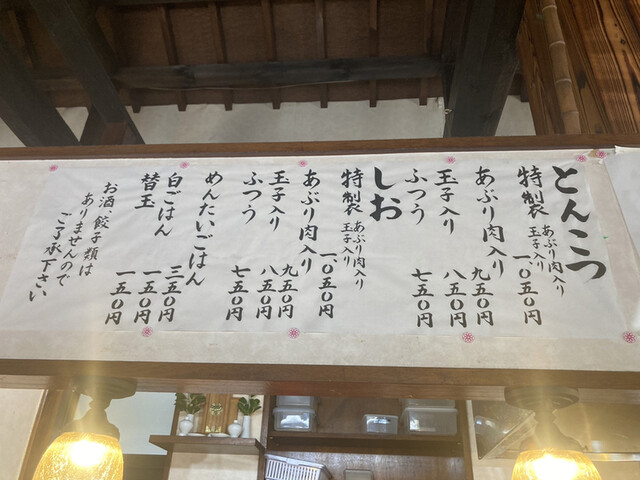 とんこつ
特製 あぶり肉入り 玉子入り 一〇五〇円
あぶり肉入り 九五〇円
玉子入り 八五〇円
ふつう 七五〇円
しお
特製 あぶり肉入り 玉子入り 一〇五〇円
あぶり肉入り 九五〇円
玉子入り 八五〇円
ふつう 七五〇円
めんたいごはん 三五〇円
白ごはん 一五〇円
替玉 一五〇円
お酒、餃子類は
ありませんので
ご了承下さい